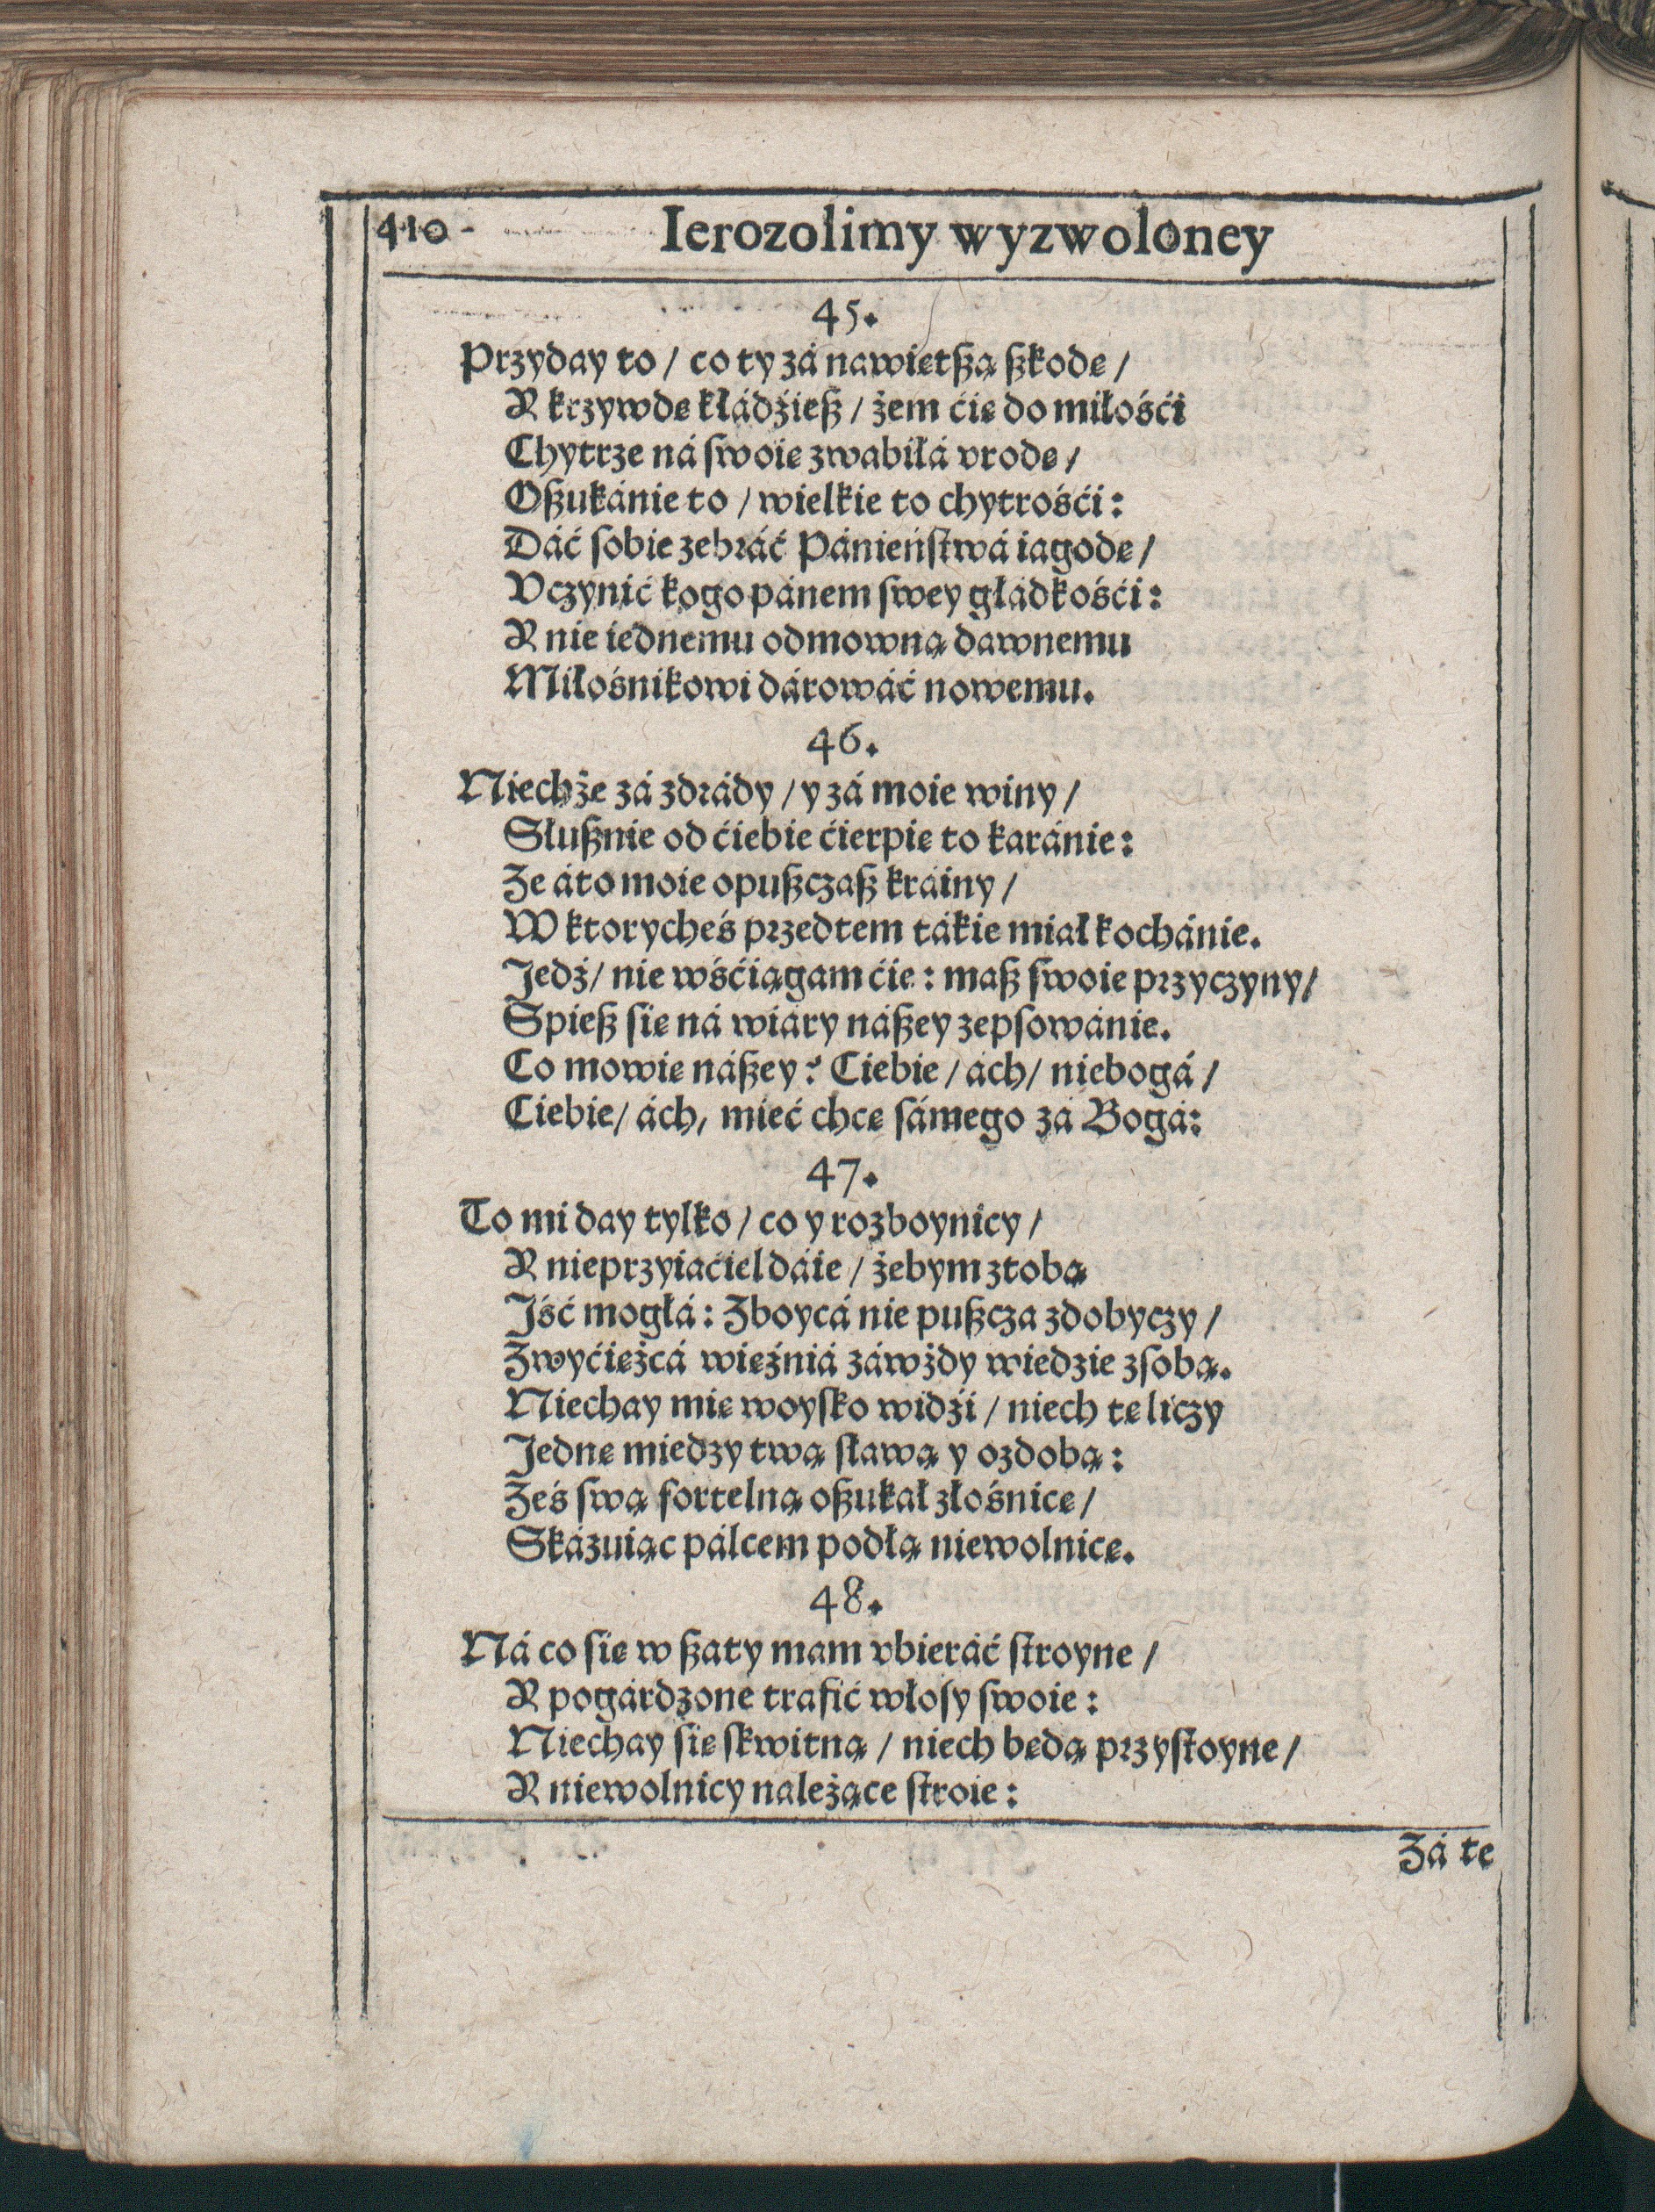 410
Ierozolimy wyzwoloney
45.
Przyday to / co ty zá nawiętßą ßkodę /
Y krzywdę kłádźieß / żem ćię do miłośći
Chytrze ná ſwoię zwabiłá vrodę /
Oßukánie to / wielkie to chytrośći:
Dáć ſobie zebráć Pánieńſtwá iagodę /
Vczynić kogo pánem ſwey głádkośći:
Y nie iednemu odmowną dawnemu
Miłośnikowi dárowáć nowemu.
46.
Niechże zá zdrády / y zá moie winy /
Słußnie od ćiebie ćierpię to karánie:
Że áto moie opußczaß kráiny /
W ktorycheś przedtem tákie miał kochánie.
Jedź / nie wśćiągam ćię: maß ſwoie przyczyny /
Spieß ſię ná wiáry náßey zepſowánie.
Co mowię náßey? Ciebie / ách / niebogá /
Ciebie / ách, mieć chcę ſámego zá Bogá:
47.
To mi day tylko / co y rozboynicy /
Y nieprzyiaćiel dáie / żebym z tobą
Jść mogłá: Zboycá nie pußcza zdobyczy /
Zwyćiężcá więźniá záwżdy wiedzie z ſobą.
Niechay mię woyſko widźi / niech tę liczy
Jednę miedzy twą ſławą y ozdobą:
Żeś ſwą fortelną oßukał złośnicę /
Skázuiąc pálcem podłą niewolnicę.
48.
Ná co ſię w ßaty mam vbieráć ſtroyne /
Y pogárdzone trafić włoſy ſwoie:
Niechay ſię ſkwitną / niech będą przyſtoyne /
Y niewolnicy należące ſtroie:
Zá tę